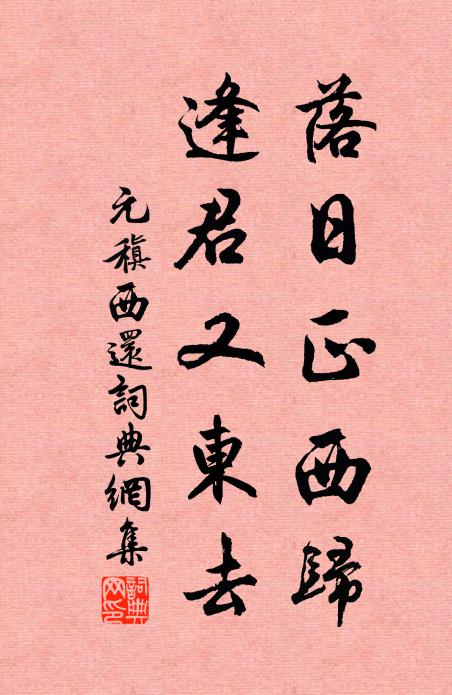 落日正西歸
逢君又東去
元稹西還詞典網集
詞典網印